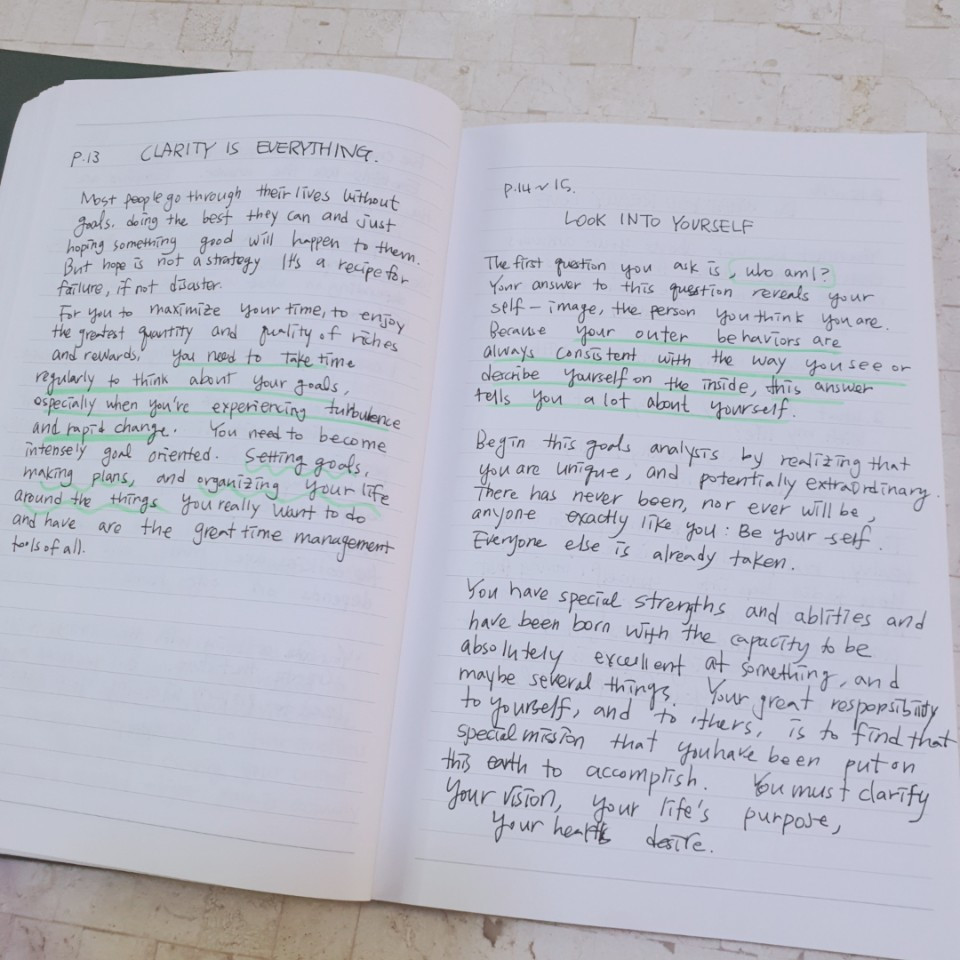 P.13 CLARITY IS EVERYTHING.
Most people go through their lives without
goals. doing the best they can and just
hoping something good will happen to them.
But hope is not a strategy It's a recipe for
failure, if not disaster.
For you to maximize your time, to enjoy
the greatest quantity and quality of riches
and rewards, you need to take time
regularly to think about your goals,
especially when you're experiencing turbulence
and rapid change. You need to become
intensely goal oriented. Setting goals,
making plans, and organizing your life
around the things you really want to do
and have are the great time management
tools of all.
P.14 ~ 15.
LOOK INTO YOURSELF
The first question you ask is, who am I?
Your answer to this question reveals your
self-image, the person you think you are.
Because your outer behaviors are
always consistent with the way you see or
describe yourself on the inside, this answer
tells you a lot about yourself.
Begin this goals analysis by realizing that
you are unique, and potentially extraordinary.
There has never been, nor ever will be,
anyone exactly like you: Be your self.
Everyone else is already taken.
You have special strengths and ablities and
have been born with the capacity to be
absolutely excellent at something, and
maybe several things. Your great respopsibility
to yourself, and to others, is to find that
special mission that you have been put on
this earth to accomplish. You must clarify
Your vision, your life's purpose,
your desire.